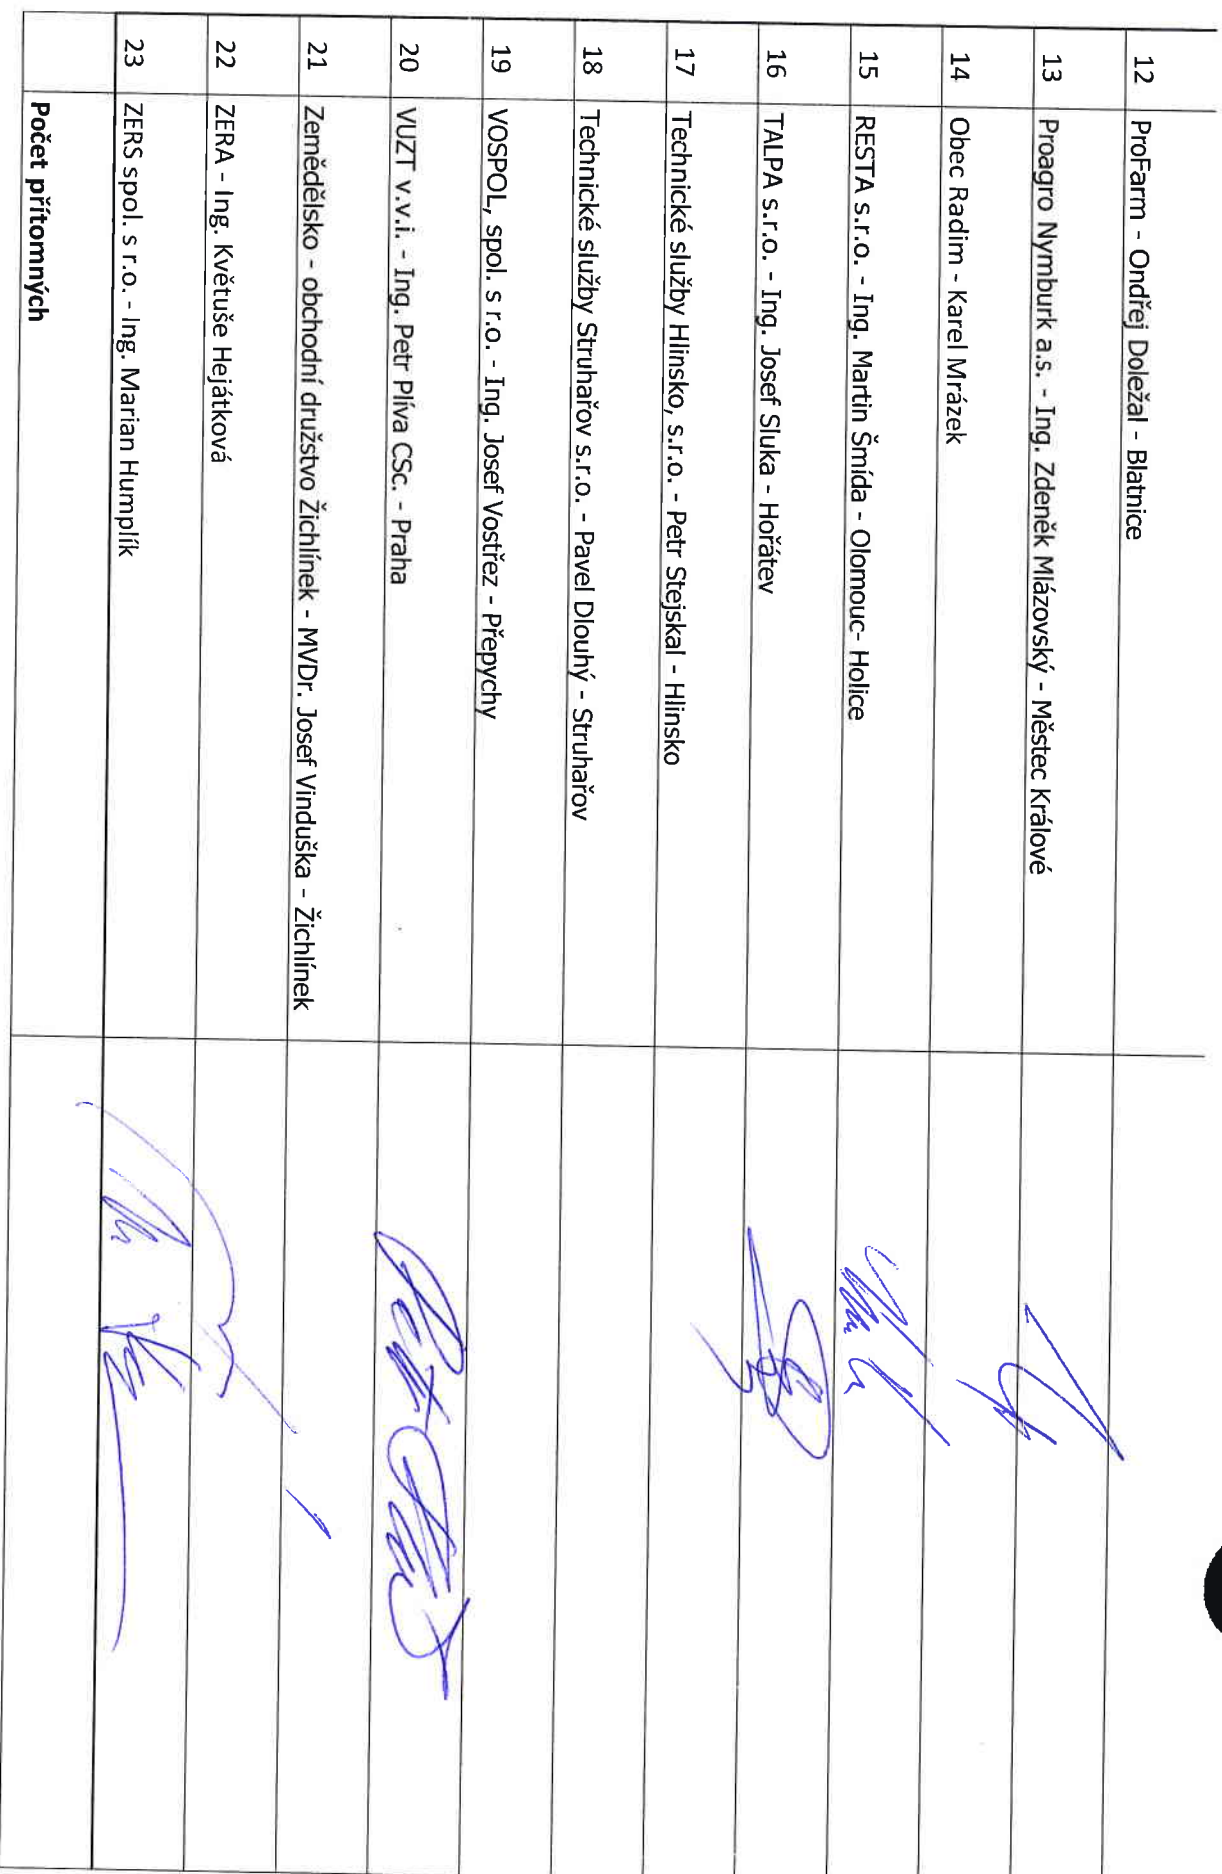 12 ProFarm - Ondřej Doležal - Blatnice
13 Proagro Nymburk a.s. - Ing. Zdeněk Mlázovský - Městec Králové
14 Obec Radim - Karel Mrázek
15 RESTA s.r.o. - Ing. Martin Šmída - Olomouc- Holice
16 TALPA s.r.o. - Ing. Josef Sluka - Hořátev
17 Technické služby Hlinsko, s.r.o. - Petr Stejskal - Hlinsko
18 Technické služby Struhařov s.r.o. - Pavel Dlouhý - Struhařov
19 VOSPOL, spol. s r.o. - Ing. Josef Vostřez - Přepychy
20 VUZT v.v.i. - Ing. Petr Plíva CSc. - Praha
21 Zemědělsko - obchodní družstvo Žichlínek - MVDr. Josef Vinduška - Žichlínek
22 ZERA - Ing. Květuše Hejátková
23 ZERS spol. s r.o. - Ing. Marian Humplík
Počet přítomných